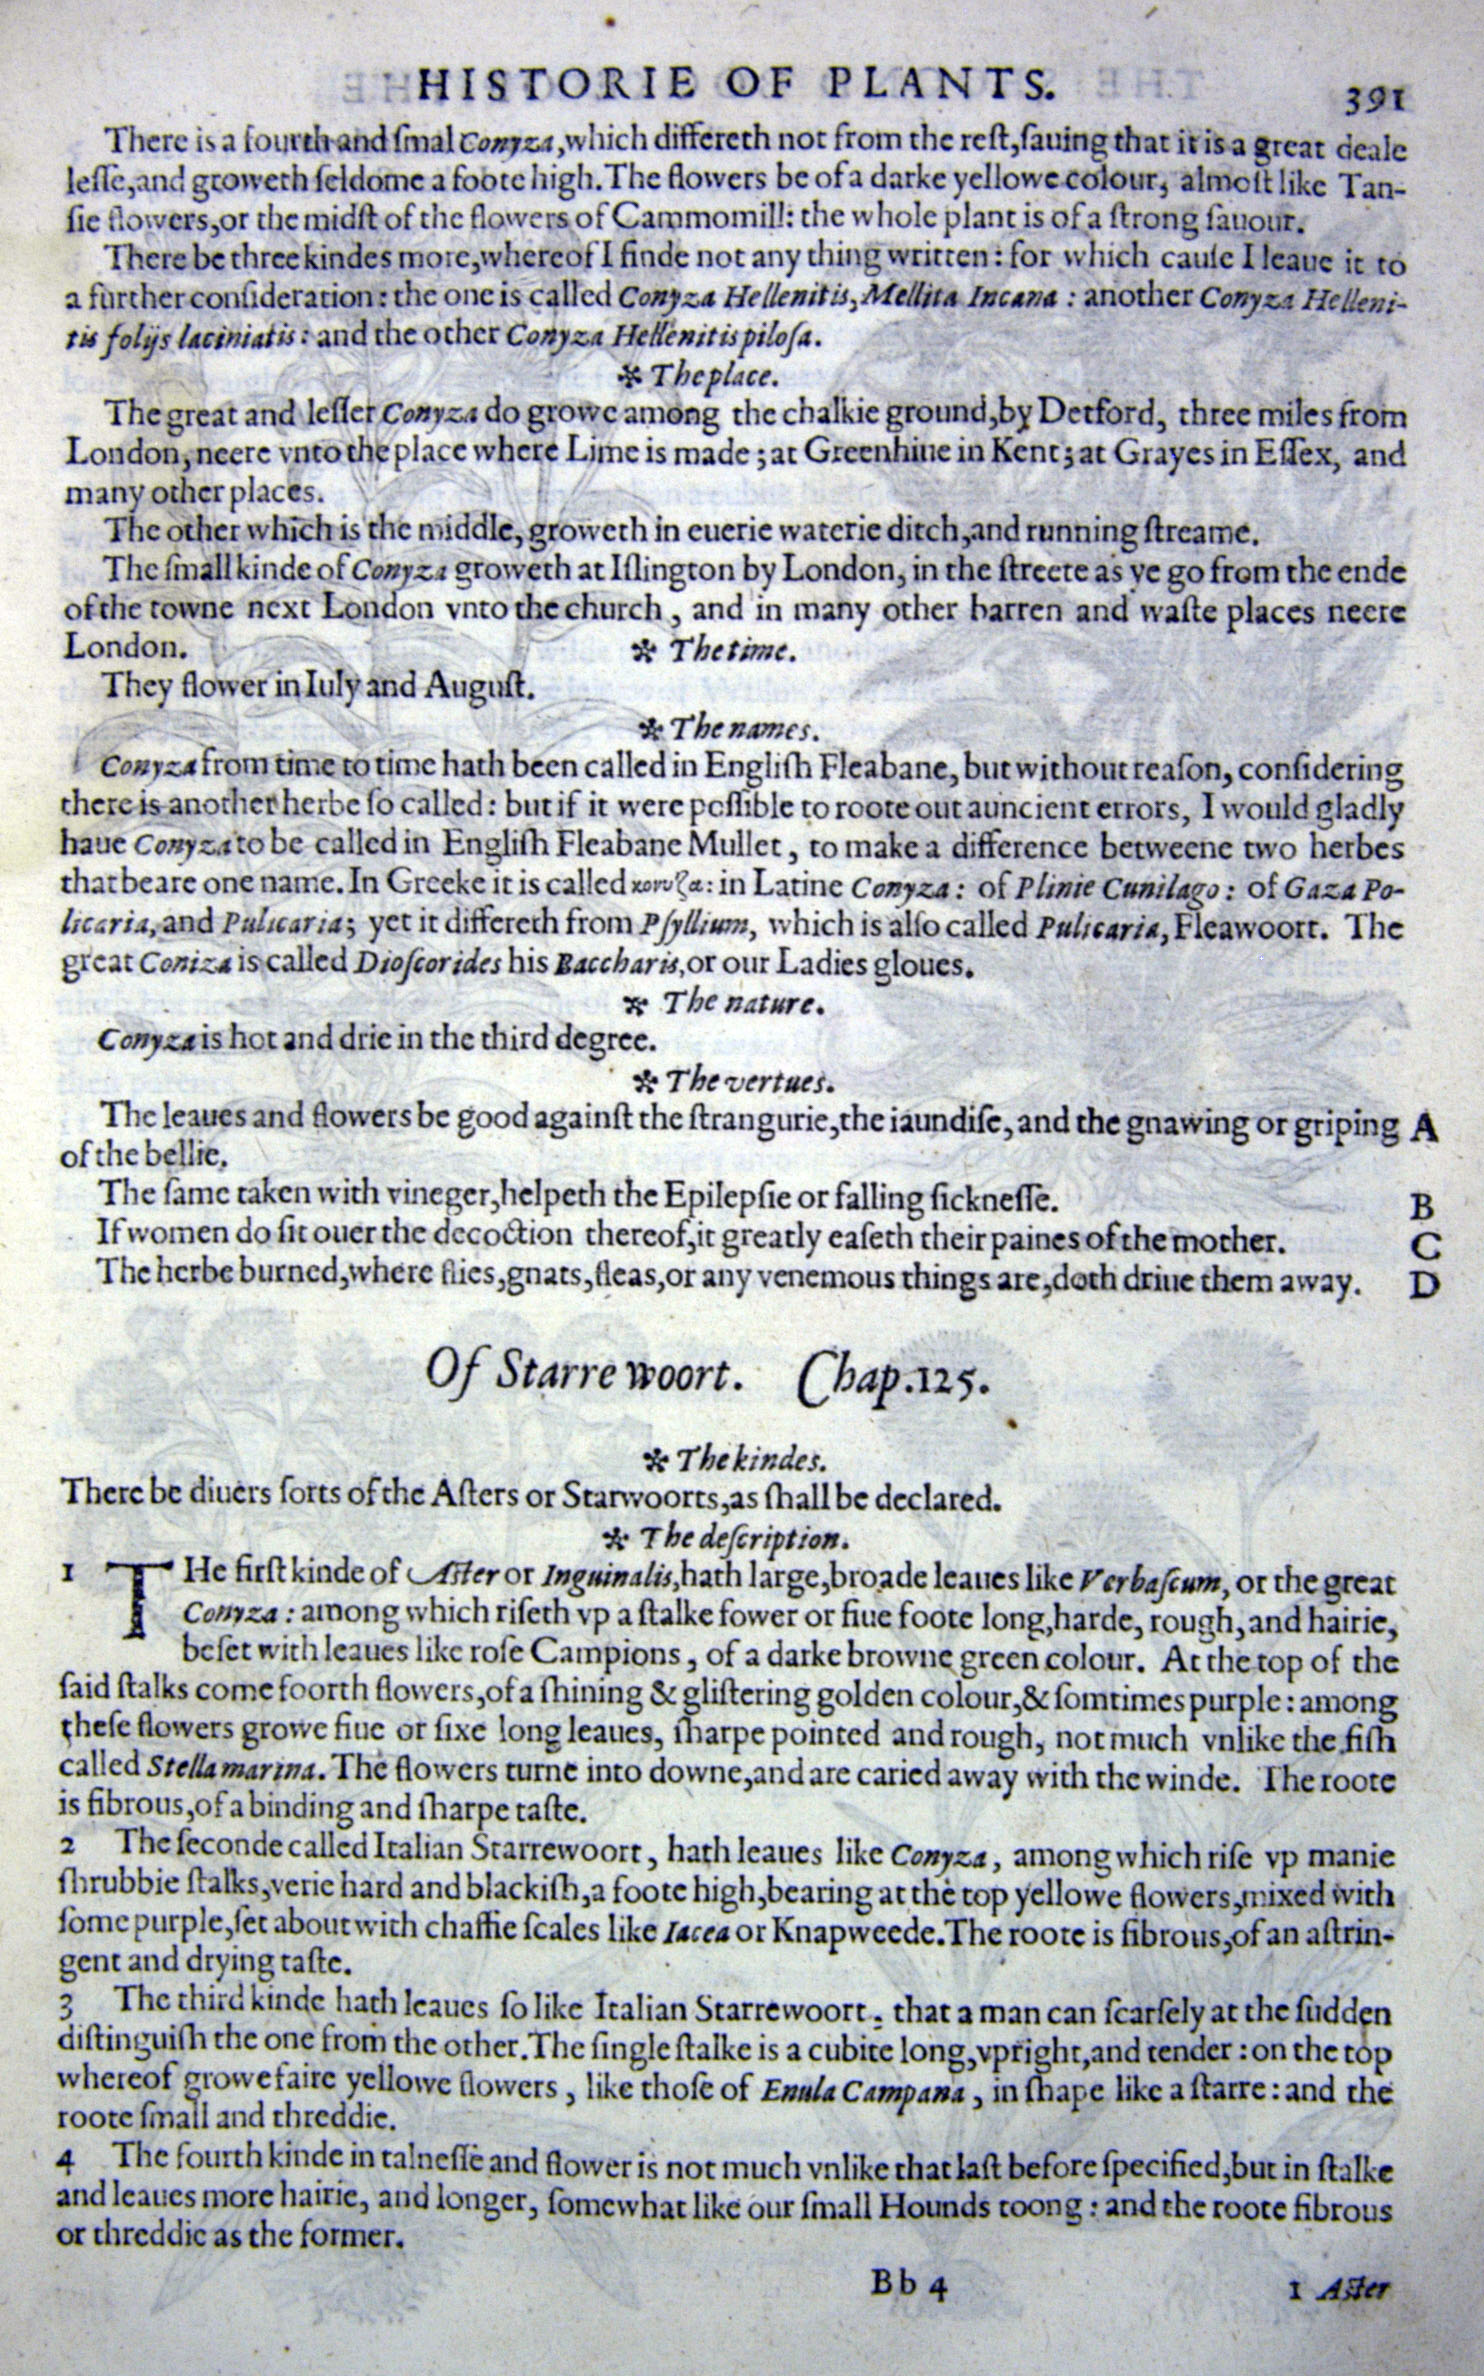 HISTORIE OF PLANTS. 391
There is a fourth and ſmal Conyza, which differeth not from the reſt, ſauing that it is a great deale
leſſe, and groweth ſeldome a foote high. The flowers be of a darke yellowe colour, almoſt like Tan-
ſie flowers, or the midſt of the flowers of Cammomill: the whole plant is of a ſtrong ſauour.
There be three kindes more, whereof I finde not any thing written: for which cauſe I leaue it to
a further conſideration: the one is called Conyza Hellenitis, Mellita Incana: another Conyza Helleni-
tis folijs laciniatis: and the other Conyza Hellenitis piloſa.
✲ The place.
The great and leſſer Conyza do growe among the chalkie ground, by Detford, three miles from
London, neere vnto the place where Lime is made; at Greenhiue in Kent; at Grayes in Eſſex, and
many other places.
The other which is the middle, groweth in euerie waterie ditch, and running ſtreame.
The ſmall kinde of Conyza groweth at Iſlington by London, in the ſtreete as ye go from the ende
of the towne next London vnto the church, and in many other barren and waſte places neere
London. ✲ The time.
They flower in Iuly and Auguſt.
✲ The names.
Conyza from time to time hath been called in Engliſh Fleabane, but without reaſon, conſidering
there is another herbe ſo called: but if it were poſſible to roote out auncient errors, I would gladly
haue Conyza to be called in Engliſh Fleabane Mullet, to make a difference betweene two herbes
that beare one name. In Greeke it is called κονυζα: in Latine Conyza: of Plinie Cunilago: of Gaza Po-
licaria, and Pulicaria; yet it differeth from Pſyllium, which is alſo called Pulicaria, Fleawoort. The
great Coniza is called Dioſcorides his Baccharis, or our Ladies gloues.
✲ The nature.
Conyza is hot and drie in the third degree.
✲ The vertues.
The leaues and flowers be good againſt the ſtrangurie, the iaundiſe, and the gnawing or griping A
of the bellie.
The ſame taken with vineger, helpeth the Epilepſie or falling ſickneſſe. B
If women do ſit ouer the decoction thereof, it greatly eaſeth their paines of the mother. C
The herbe burned, where flies, gnats, fleas, or any venemous things are, doth driue them away. D
Of Starre woort. Chap. 125.
✲ The kindes.
There be diuers ſorts of the Aſters or Starwoorts, as ſhall be declared.
✲ The deſcription.
1 THe firſt kinde of Aſter or Inguinalis, hath large, broade leaues like Verbaſcum, or the great
Conyza: among which riſeth vp a ſtalke fower or fiue foote long, harde, rough, and hairie,
beſet with leaues like roſe Campions, of a darke browne green colour. At the top of the
ſaid ſtalks come foorth flowers, of a ſhining & gliſtering golden colour, & ſomtimes purple: among
theſe flowers growe fiue or ſixe long leaues, ſharpe pointed and rough, not much vnlike the fiſh
called Stella marina. The flowers turne into downe, and are caried away with the winde. The roote
is fibrous, of a binding and ſharpe taſte.
2 The ſeconde called Italian Starrewoort, hath leaues like Conyza, among which riſe vp manie
ſhrubbie ſtalks, verie hard and blackiſh, a foote high, bearing at the top yellowe flowers, mixed with
ſome purple, ſet about with chaffie ſcales like Iacea or Knapweede. The roote is fibrous, of an aſtrin-
gent and drying taſte.
3 The third kinde hath leaues ſo like Italian Starrewoort, that a man can ſcarſely at the ſudden
diſtinguiſh the one from the other. The ſingle ſtalke is a cubite long, vpright, and tender: on the top
whereof growe faire yellowe flowers, like thoſe of Enula Campana, in ſhape like a ſtarre: and the
roote ſmall and threddie.
4 The fourth kinde in talneſſe and flower is not much vnlike that laſt before ſpecified, but in ſtalke
and leaues more hairie, and longer, ſomewhat like our ſmall Hounds toong: and the roote fibrous
or threddie as the former.
Bb 4 1 Aſter